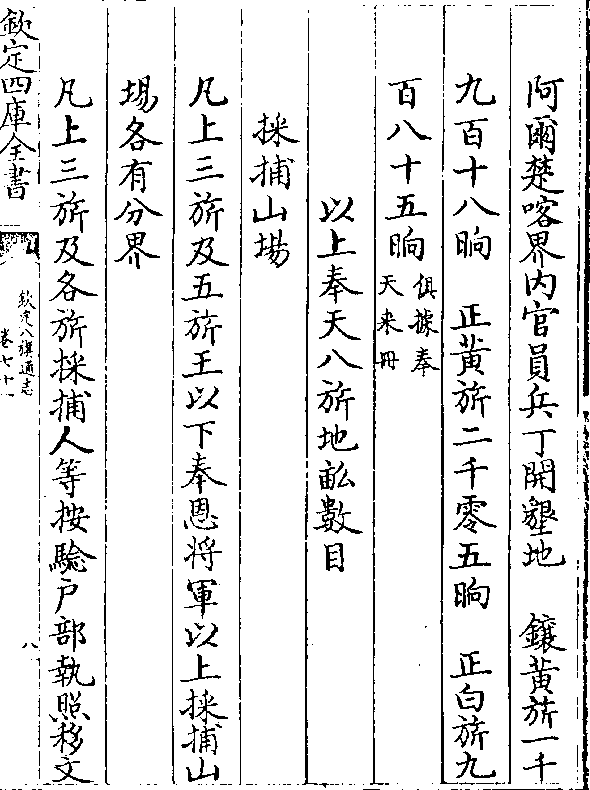 阿爾楚喀界内官員兵丁開墾地　鑲黄旂一千
九百十八晌　正黄旂二千零五晌　正白旂九
百八十五晌俱據奉
天来冊
以上奉天八旂地畝數目
採捕山場
凡上三旂及五旂王以下奉恩将軍以上採捕山
場各有分界
凡上三旂及各旂採捕人等按驗户部執照移文
欽定四庫全書
欽定八旗通志
卷七十一
八